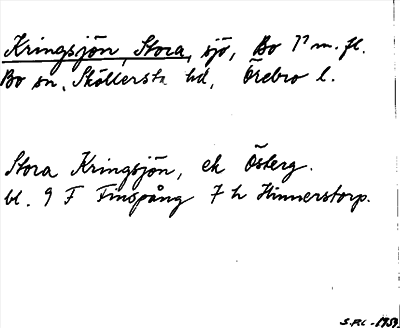 Kringsjön, Stora, sjö, Bo 1² m. fl.
Bo sn, Sköllersta hd, Örebro l.
Stora Kringsjön, ek Österg.
bl. 9 F Finspång 7 h Hinnerstorp.